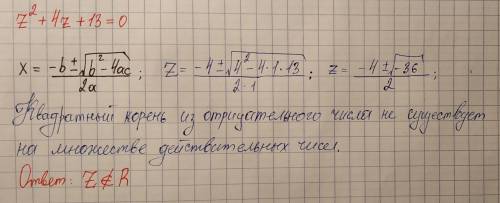 z² + 4z + 13 = 0
x = (-b ± √(b² - 4ac)) / 2a; z = (-4 ± √(4² - 4·1·13)) / 2·1; z = (-4 ± √-36) / 2;
Квадратный корень из отрицательного числа не существует
на множестве действительных чисел.
Ответ: Z ∉ R